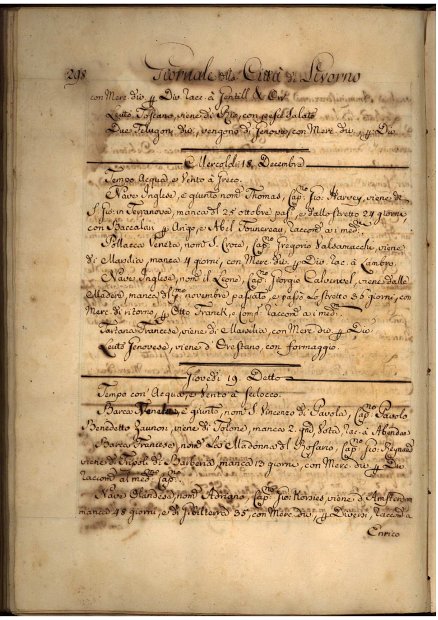 298 Giornale della Città di Livorno
con Merc. div. p. Div. racc. à Gentill & Orr
Leuto Toscano, viene di Rio, con pesce Salato
Due Felugoni div. vengono di Genova, con Merc. div. p. Div.
Mercoldi 18. Decembre
Tempo Acqua, e Vento à Greco.
Nave Inglese, è giunto nom.o Thomas, Cap.no Gio: Harvey, viene di
S. Gio: in Terranova, manca d. 25 ottobre pas.o, e dallo stretto 24 giorni
con Baccalau p. Arigo, e Abel Fonnereau, raccor. ai med.mi
Pollacca Veneta, nom.o S. Croce, Cap.no Gregorio Valsamacchi, viene
di Marsilia, manca 4 giorni, con Merc. div. p. Div. rac. à Lambro.
Nave Inglese, nom.o il Leone, Cap.no Giorgio, viene dalle
Madere, manca d. p.mo novembre passato, e passò lo stretto 35 giorni, con
Merc. di ritorno, p. Otto Franck, e Comp. raccor. a i med.mi
Tartana Francese, viene di Marsilia, con Merc. div. p. Div.
Leuto Genovese, viene d'Orestano, con formaggio.
Giovedi 19. Detto
Tempo con Acqua, e Vento à Scilocco.
Barca Veneta, è giunto, nom.o S. Vincenzo di Pavola, Cap.no Pavolo
Benedetto, viene di Tolone, manca 2. gni Vota, rac. à
Barca Francese, nom.o La Madonna del Rosario, Cap.no Gio:
viene di Tripoli di Barberia, manca 13 giorni, con Merc. div. p. Div.
raccor. al med.o Cap.no
Nave Olandese, nom.o Adriano, Cap.no, viene d'Amsterdam
manca 48 giorni, e di Gibilterra 35, con Merc. div. p. Diversi, raccor. a
Enrico